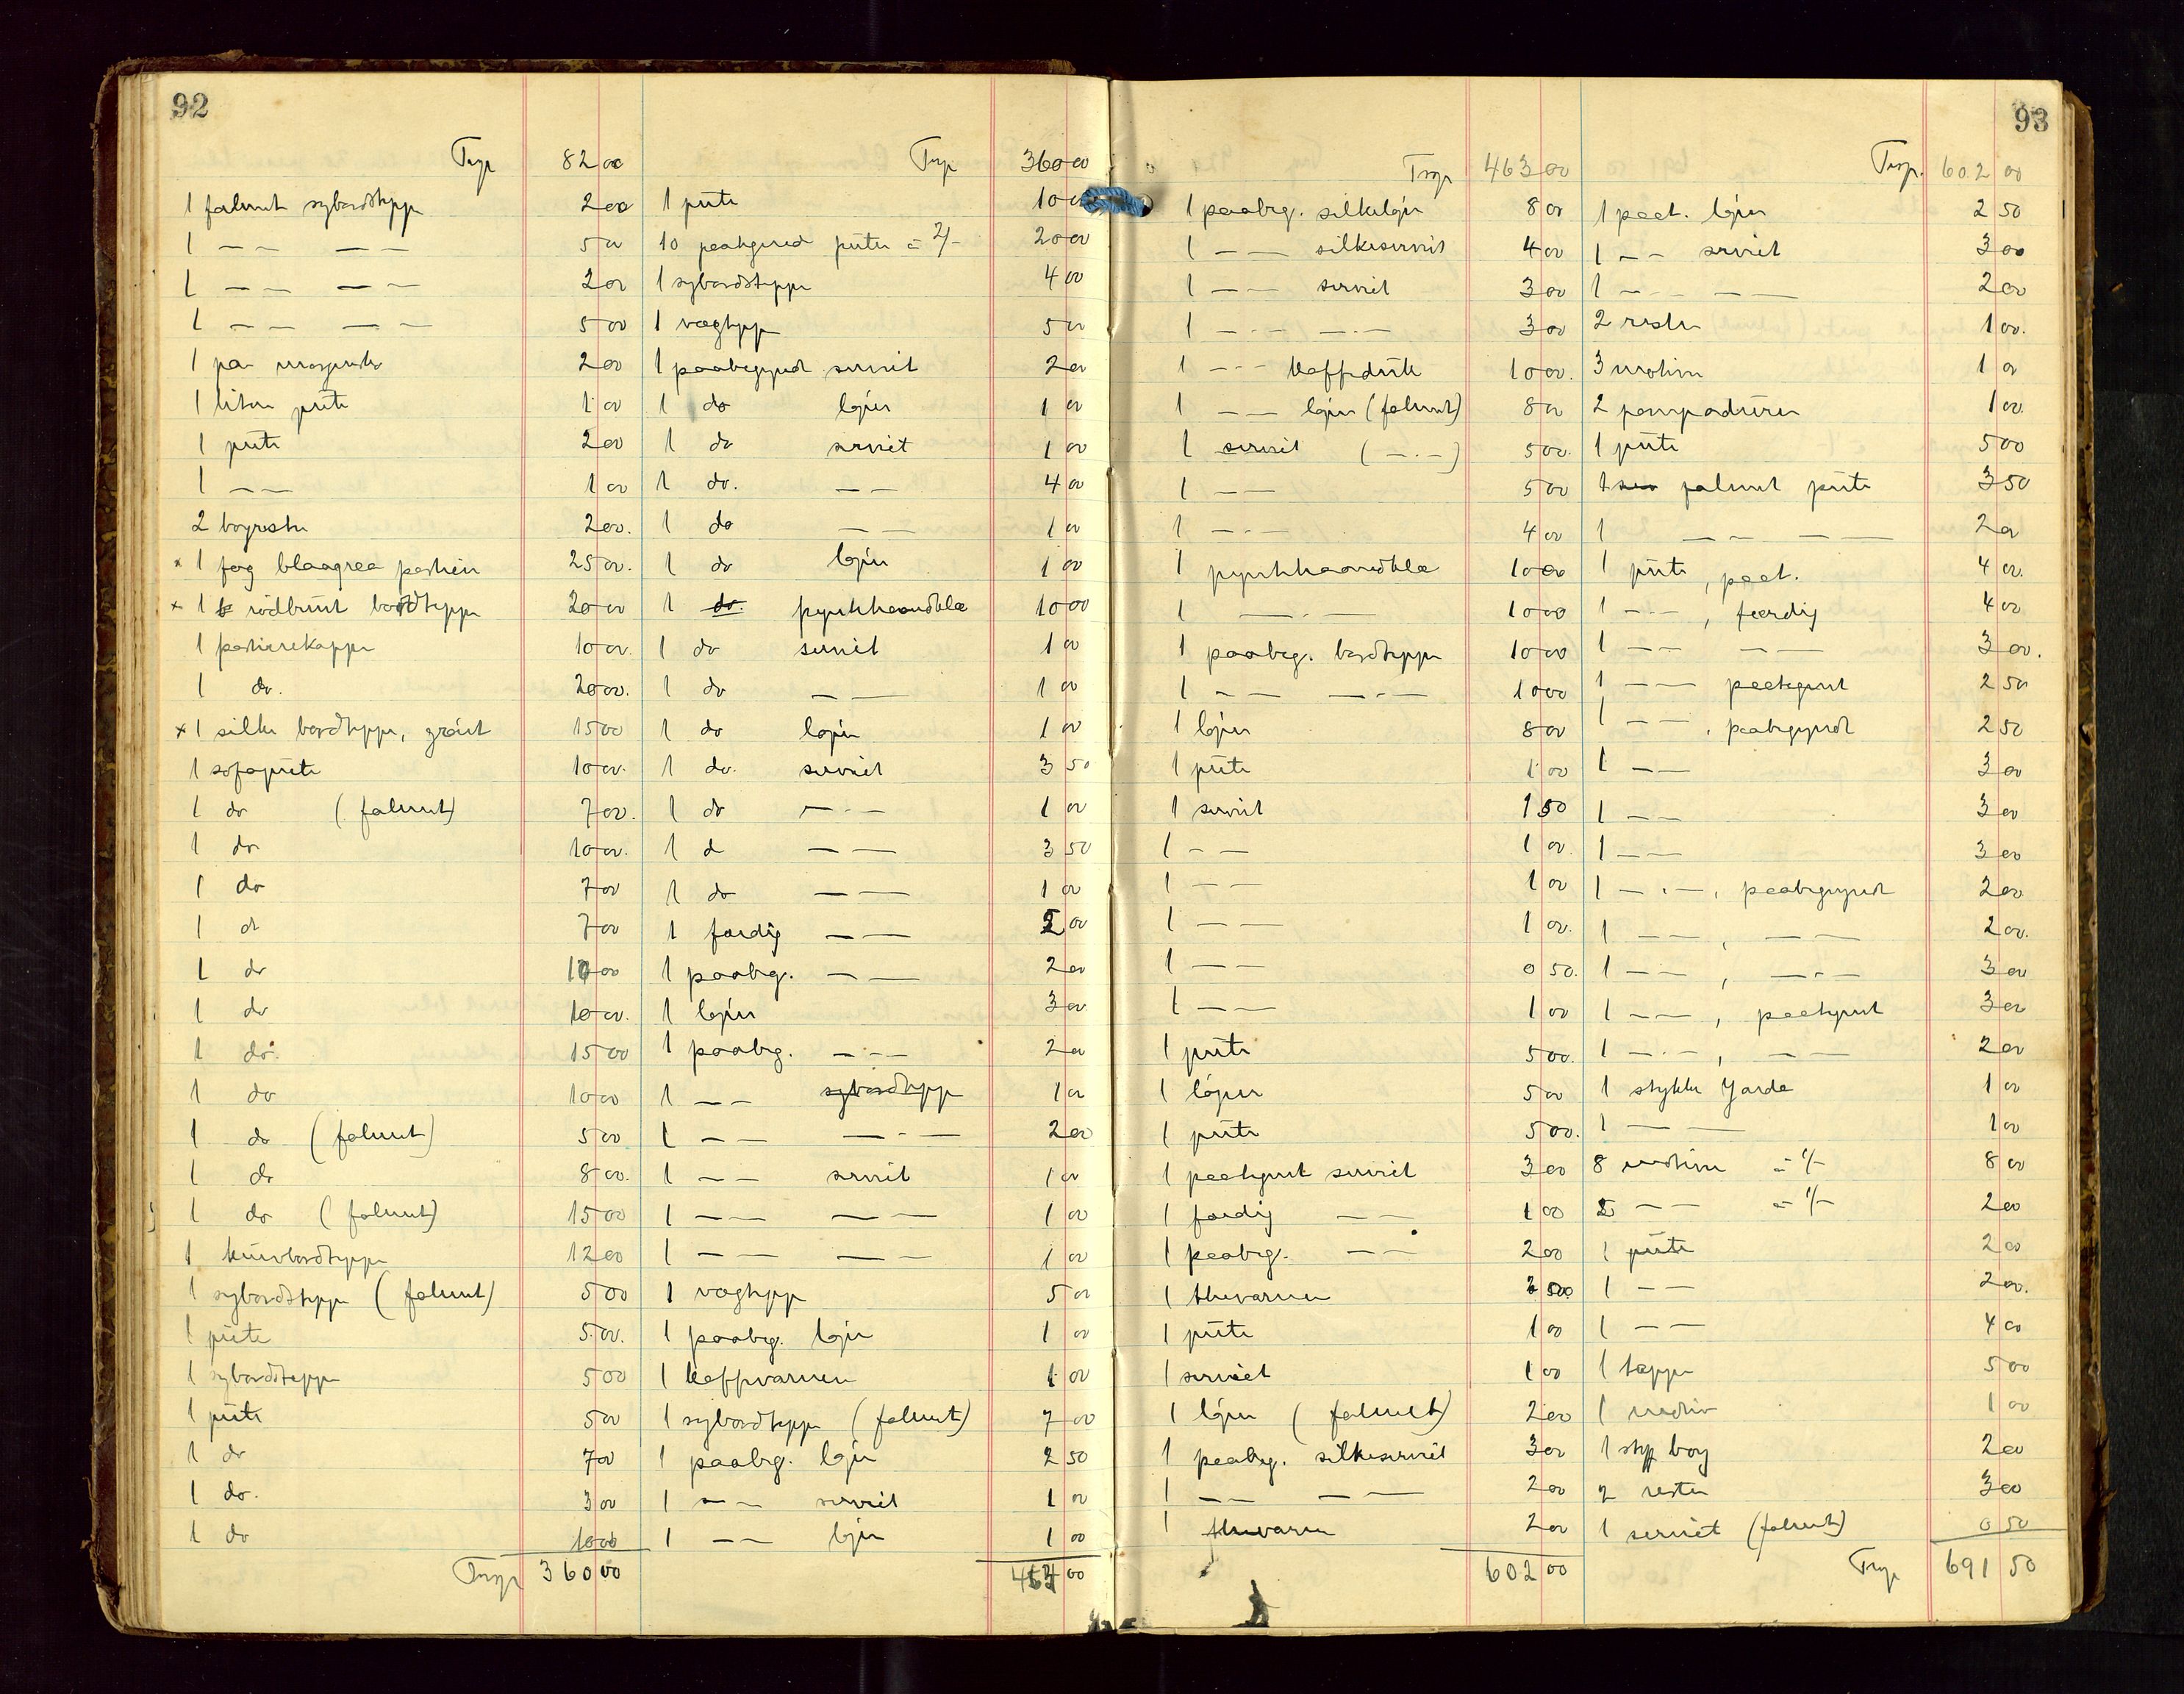 92
Trsp 82 00
1 falmet sybordsteppe 2 00
1 — — — — 5 00
1 — — — — 2 00
1 — — — — 5 00
1 par 2 00
1 liten pute 1 00
1 pute 2 00
1 — — 1 00
2 boyrester 2 00.
x 1 fag blaagrøa portier 25 00.
x 1 rødbrunt bordteppe 20 00
1 portierekappe 10 00.
1 do. 20 00.
x 1 silke bordteppe, grønt 15 00
1 sofapute 10 00.
1 do (falmet) 7 00.
1 do 10 00.
1 do 7 00
1 do 7 00
1 do 10 00
1 do 10 00.
1 do. 15 00
1 do 10 00
1 do (falmet) 5 00
1 do 8 00.
1 do (falmet) 15 00
1 kurvbordteppe 12 00
1 sybordsteppe (falmet) 5 00
1 pute 5 00.
1 sybordsteppe 5 00
1 pute 5 00
1 do 7 00
1 do. 3 00
1 do 10 00
Trsp 360 00
Trsp 360 00
1 pute 10 00
10 paategned puter à 2/- 20 00
1 sybordsteppe 4 00
1 vægtepp 5 00
1 paabegyndt serviet 2 00
1 do løper 1 00
1 do serviet 1 00
1 do. — — 4 00
1 do — — 1 00
1 do løper 1 00
1 do. pyntehaandklæ 10 00
1 do serviet 1 00
1 do — — 1 00
1 do løper 1 00
1 do. serviet 3 50
1 do — - — 1 00
1 d — — 3 50
1 do — — 1 00
1 færdig — — 2 00
1 paabeg. — — 2 00
1 løper 3 00
1 paabeg. — - — 2 00
1 — — sybordtepp 1 00
1 — — — - — 2 00
1 — — serviet 1 00
1 — — — — 1 00
1 — — — — 1 00
1 vægtepp 5 00
1 paabeg. løper 1 00
1 kaffevarmer 1 00
1 sybordteppe (falmet) 7 00
1 paabeg. løper 2 50
1 — — serviet 1 00
1 — — løper 1 00
463 00
93
Trsp 463 00
1 paabeg. silkeløper 8 00
1 — — silkeserviet 4 00
1 — — serviet 3 00
1 — - — — - — 3 00
1 — - — kaffeduk 10 00.
1 — — løper (falmet) 8 00
1 serviet (— - —) 5 00.
1 — — 5 00
1 — - — 4 00
1 pyntehaandklæ 10 00
1 — - — 10 00
1 paabeg. bordteppe 10 00
1 — — — - — 10 00
1 løper 8 00
1 pute 1 00
1 serviet 1 50
1 — — 1 00.
1 — — 1 00
1 — — 1 00.
1 — — 0 50.
1 — — 1 00
1 pute 5 00.
1 løper 5 00
1 pute 5 00.
1 paategnet serviet 3 00
1 færdig — — 1 00
1 paabeg. — — 2 00
1 thevarmer 2 50
1 pute 1 00
1 serviet 1 00
1 løper (falmet) 2 00
1 paabeg. silkeserviet 3 00
1 — — — — 2 00
1 thevarmer 2 00
602 00
Trsp. 602 00
1 paat. løper 2 50
1 — — serviet 3 00
1 — — — — 2 00
2 rester 1 00.
3 motiver 1 00
2 pompadurer 1 00.
1 pute 5 00
1 falmet pute 3 50
1 — — — — 2 00
1 pute, paat. 4 00.
1 — - —, færdig 4 00
1 — — — — 3 00.
1 — — paategnet 2 50
1 — —, paabegyndt 2 50
1 — — 3 00
1 — — 3 00
1 — — 3 00
1 — - —, paabegyndt 2 00
1 — —, — — 2 00.
1 — —, — - — 3 00
1 — —, paategnet 3 00
1 — - —, — — 2 00
1 stykke garde 1 00
1 — — 1 00
8 motiver à 1/- 8 00
2 — — à 1/- 2 00
1 pute 2 00
1 — — 2 00.
1 — — 4 00
1 teppe 5 00
1 motiv 1 00
1 styk boy 2 00
2 rester 3 00
1 serviet (falmet) 0 50
Trsp 691 50